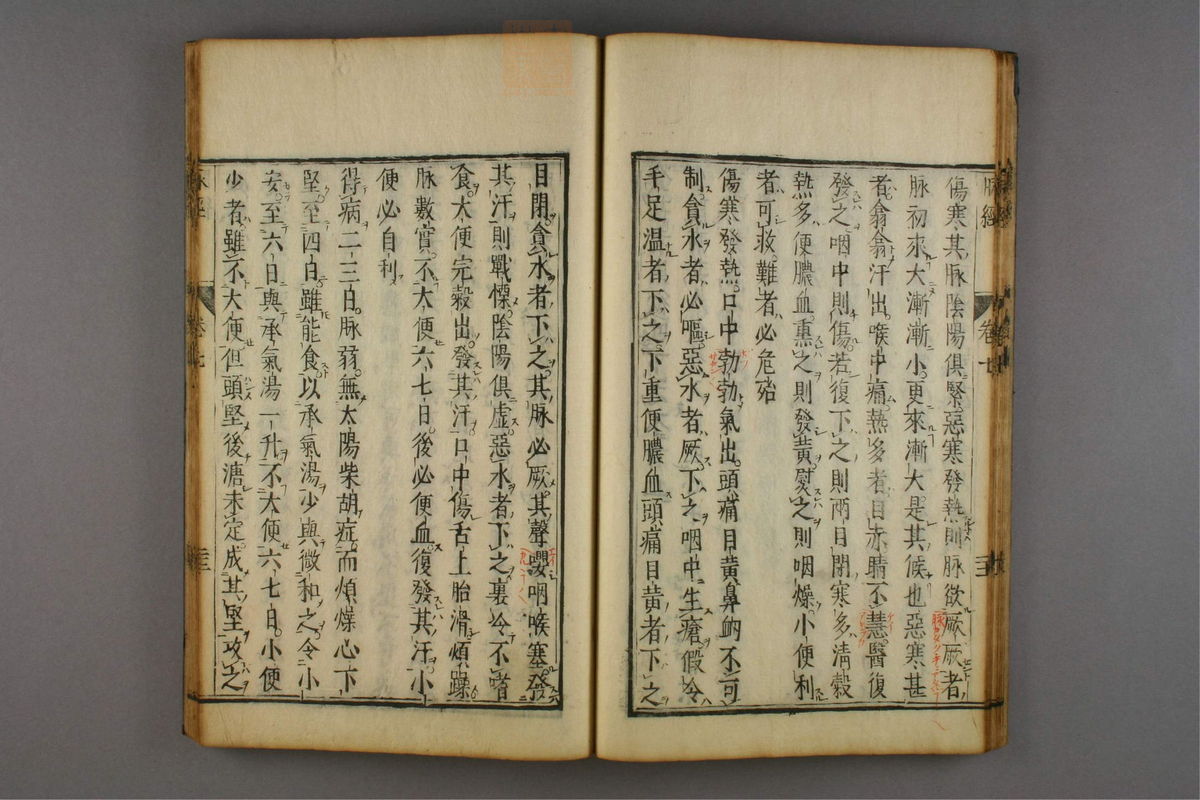 傷寒其脉陰陽俱緊惡寒發熱則脉欲厥厥者
脉初來大漸漸小更來漸大是其候也惡寒甚
者翁翁汗出喉中痛熱多者目赤睛不慧醫復
發之咽中則傷若復下之則兩目閉寒多清穀
熱多便膿血熏之則發黃熨之則咽燥小便利
者可救難者必危殆
傷寒發熱口中勃勃氣出頭痛目黃鼻衂不可
制貪水者必嘔惡水者厥下之咽中生瘡假令
手足溫者下之下重便膿血頭痛目黃者下之
目閉貪水者下之其脉必厥其聲嚶咽喉塞發
其汗則戰慄陰陽俱虛惡水者下之裏冷不嗜
食大便完穀出發其汗口中傷舌上胎滑煩躁
脉數實不大便六七日後必便血復發其汗小
便必自利
得病二三日脉弱無太陽柴胡症而煩燥心下
堅至四日雖能食以承氣湯少與微和之令小
安至六日與承氣湯一升不大便六七日小便
少者雖不大便但頭堅後溏未定成其堅攻之
脉經
卷七
脉經
卷七